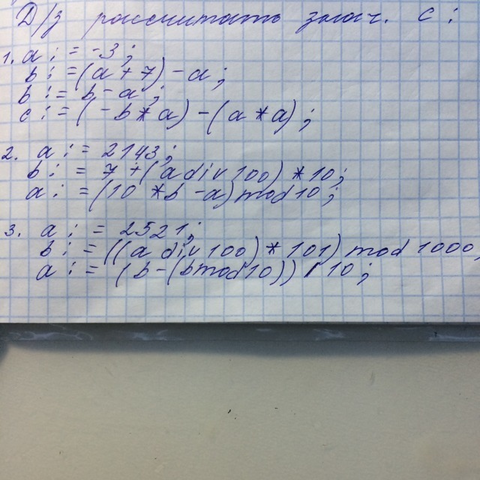 Д/з рассчитать знач. c :
1. a : = -3 ;
b : = (a + 7) - a ;
b : = b - a ;
c : = (- b * a) - (a * a) ;
2. a : = 2143 ;
b : = 7 + (a div 100) * 10 ;
a : = (10 * b - a) mod 10 ;
3. a : = 2521 ;
b : = ((a div 100) * 101) mod 1000,
a : = (b - (b mod 10)) / 10 ;